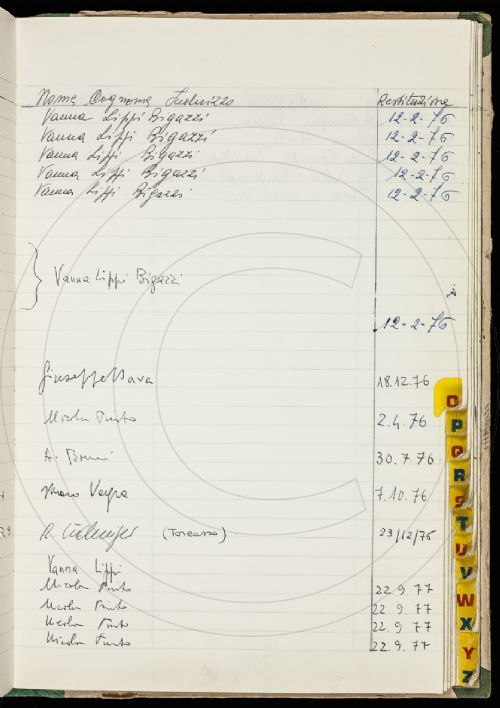 Nome Cognome Indirizzo Restituzione
Vanna Lippi Bigazzi 12-2-76
Vanna Lippi Bigazzi 12-2-76
Vanna Lippi Bigazzi 12-2-76
Vanna Lippi Bigazzi 12-2-76
Vanna Lippi Bigazzi 12-2-76
Vanna Lippi Bigazzi
12-2-76
Giuseppe 18.12.76
Nicola 2.4.76
A. 30.7.76
7.10.76
R. 23/12/76
Vanna Lippi
Nicola 22.9.77
Nicola 22.9.77
Nicola 22.9.77
Nicola 22.9.77
O
P
Q
R
S
T
U
V
W
X
Y
Z